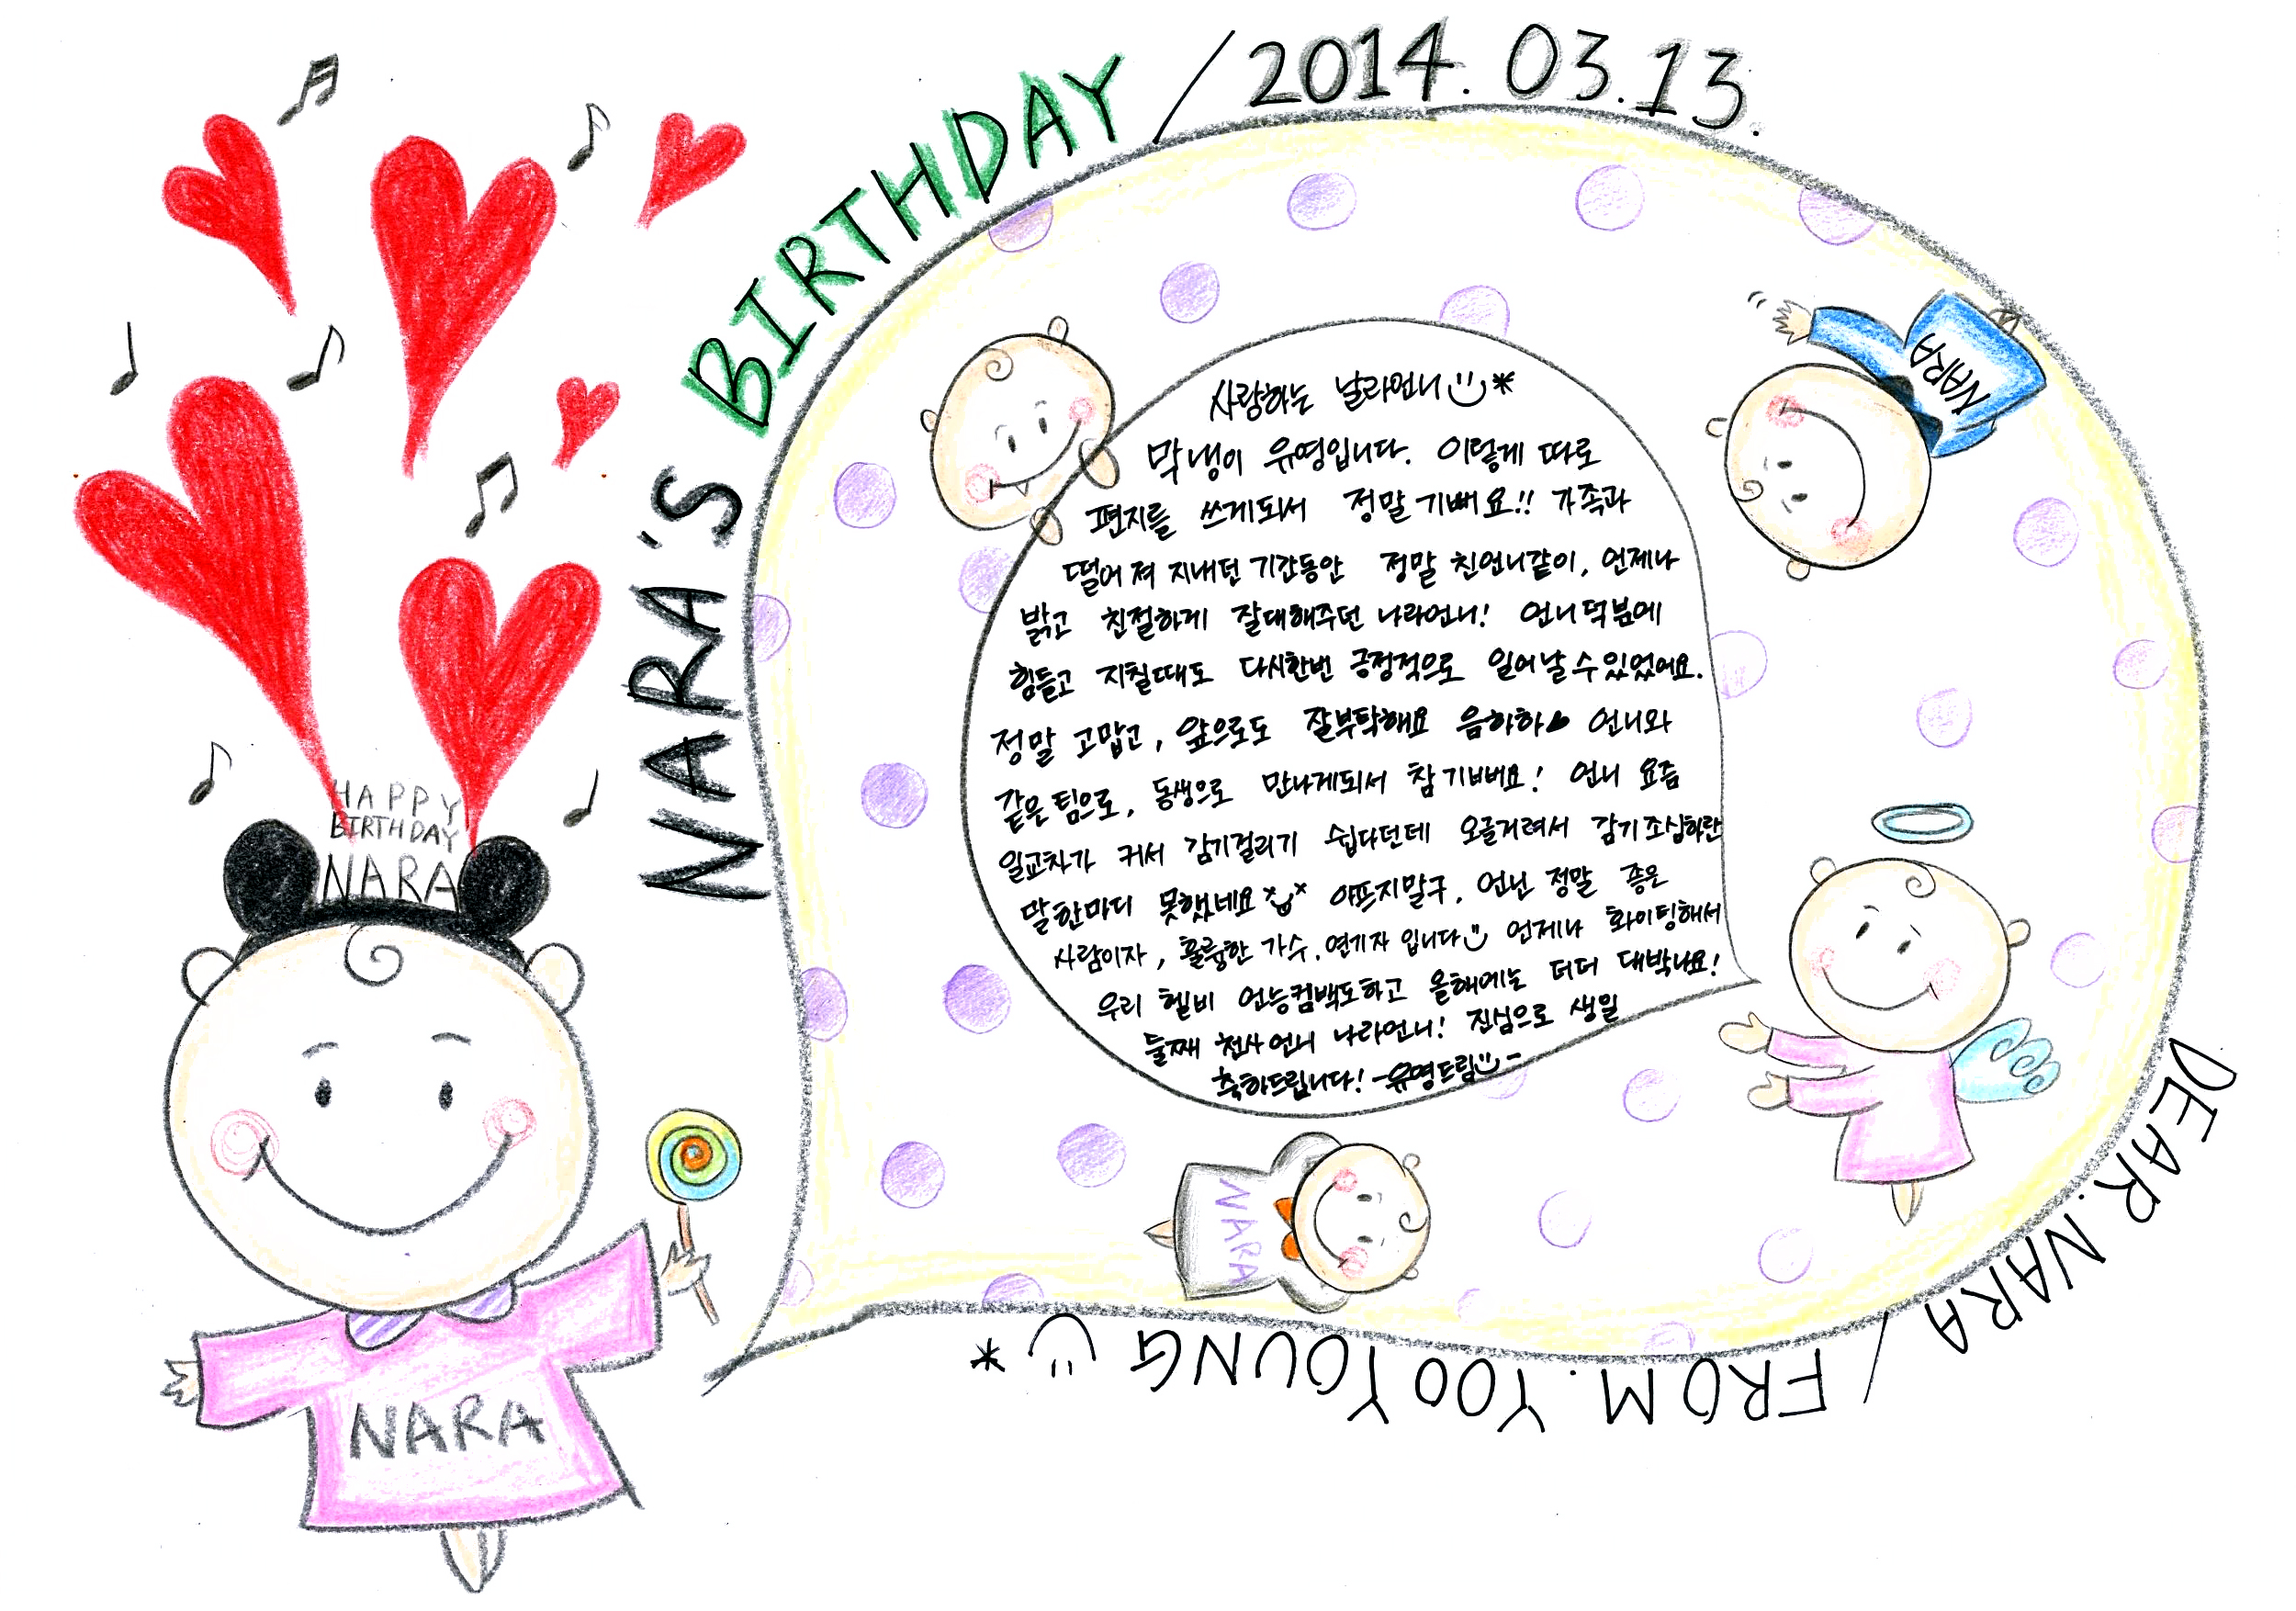 NARA'S BIRTHDAY / 2014. 03. 13.
HAPPY
BIRTHDAY
NARA
NARA
사랑하는 날라언니
막냉이 유영입니다. 이렇게 따로
편지를 쓰게되서 정말 기뻐요!! 가족과
떨어져 지내던 기간동안 정말 친언니같이, 언제나
밝고 친절하게 잘대해주던 나라언니! 언니덕붐에
힘들고 지칠때도 다시한번 긍정적으로 일어날 수 있었어요.
정말 고맙고, 앞으로도 잘부탁해요 음하하 언니와
같은 팀으로, 동생으로 만나게되서 참 기뻐요! 언니 요즘
일교차가 커서 감기걸리기 쉽다던데 오글거려서 감기조심하란
말한마디 못했네요 아프지말구, 언닌 정말 좋은
사람이자, 훌륭한 가수, 연기자 입니다 언제나 화이팅해서
우리 헬비 언능컴백도하고 올해에는 더더 대박나요!
둘째 천사언니 나라언니! 진심으로 생일
축하드립니다! -유영드림-
NARA
NARA
DEAR. NARA / FROM. YOO YOUNG *